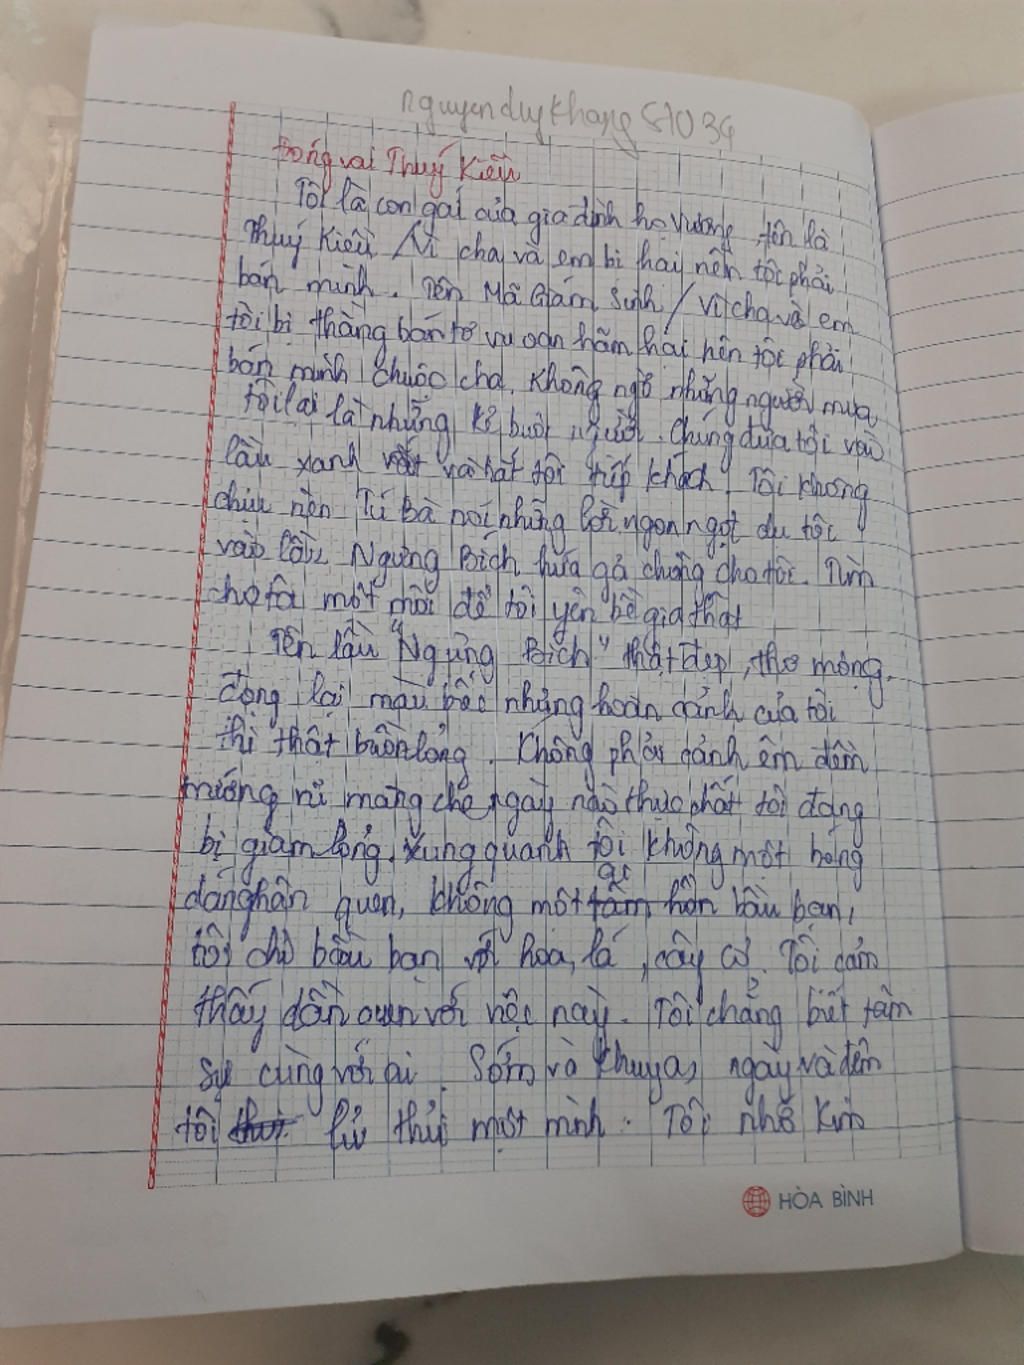 nguyenduykhang S1034
Đóng vai Thuý Kiều
Tôi là con gái của gia đình họ Vương, tên là
Thuý Kiều. Vì cha và em bị hại nên tôi phải
bán mình. Tên Mã Giám Sinh / Vì cha và em
tôi bị thằng bán tơ vu oan hãm hại nên tôi phải
bán mình chuộc cha. Không ngờ những người mua
tôi lại là những kẻ buôn người. Chúng đưa tôi vào
lầu xanh và bắt tôi tiếp khách. Tôi không
chịu nên Tú Bà nói những lời ngon ngọt dụ tôi
vào lầu Ngưng Bích hứa gả chồng cho tôi. Tìm
cho tôi một mối để tôi yên bề gia thất
Tên lầu "Ngưng Bích" thật đẹp, thơ mộng.
đọng lại màu nhưng hoàn cảnh của tôi
thì thật buồn lòng. Không phải cảnh êm đềm
trướng rủ màng che ngày nào thực chất tôi đang
bị giam lỏng. Xung quanh tôi không một bóng
dáng thân quen, không một ai bầu bạn,
tôi chỉ bầu bạn với hoa, lá, cây cỏ. Tôi cảm
thấy dần quen với việc này. Tôi chẳng biết tâm
sự cùng với ai. Sớm và khuya, ngày và đêm
tôi lủi thủi một mình. Tôi nhớ Kim
HÒA BÌNH